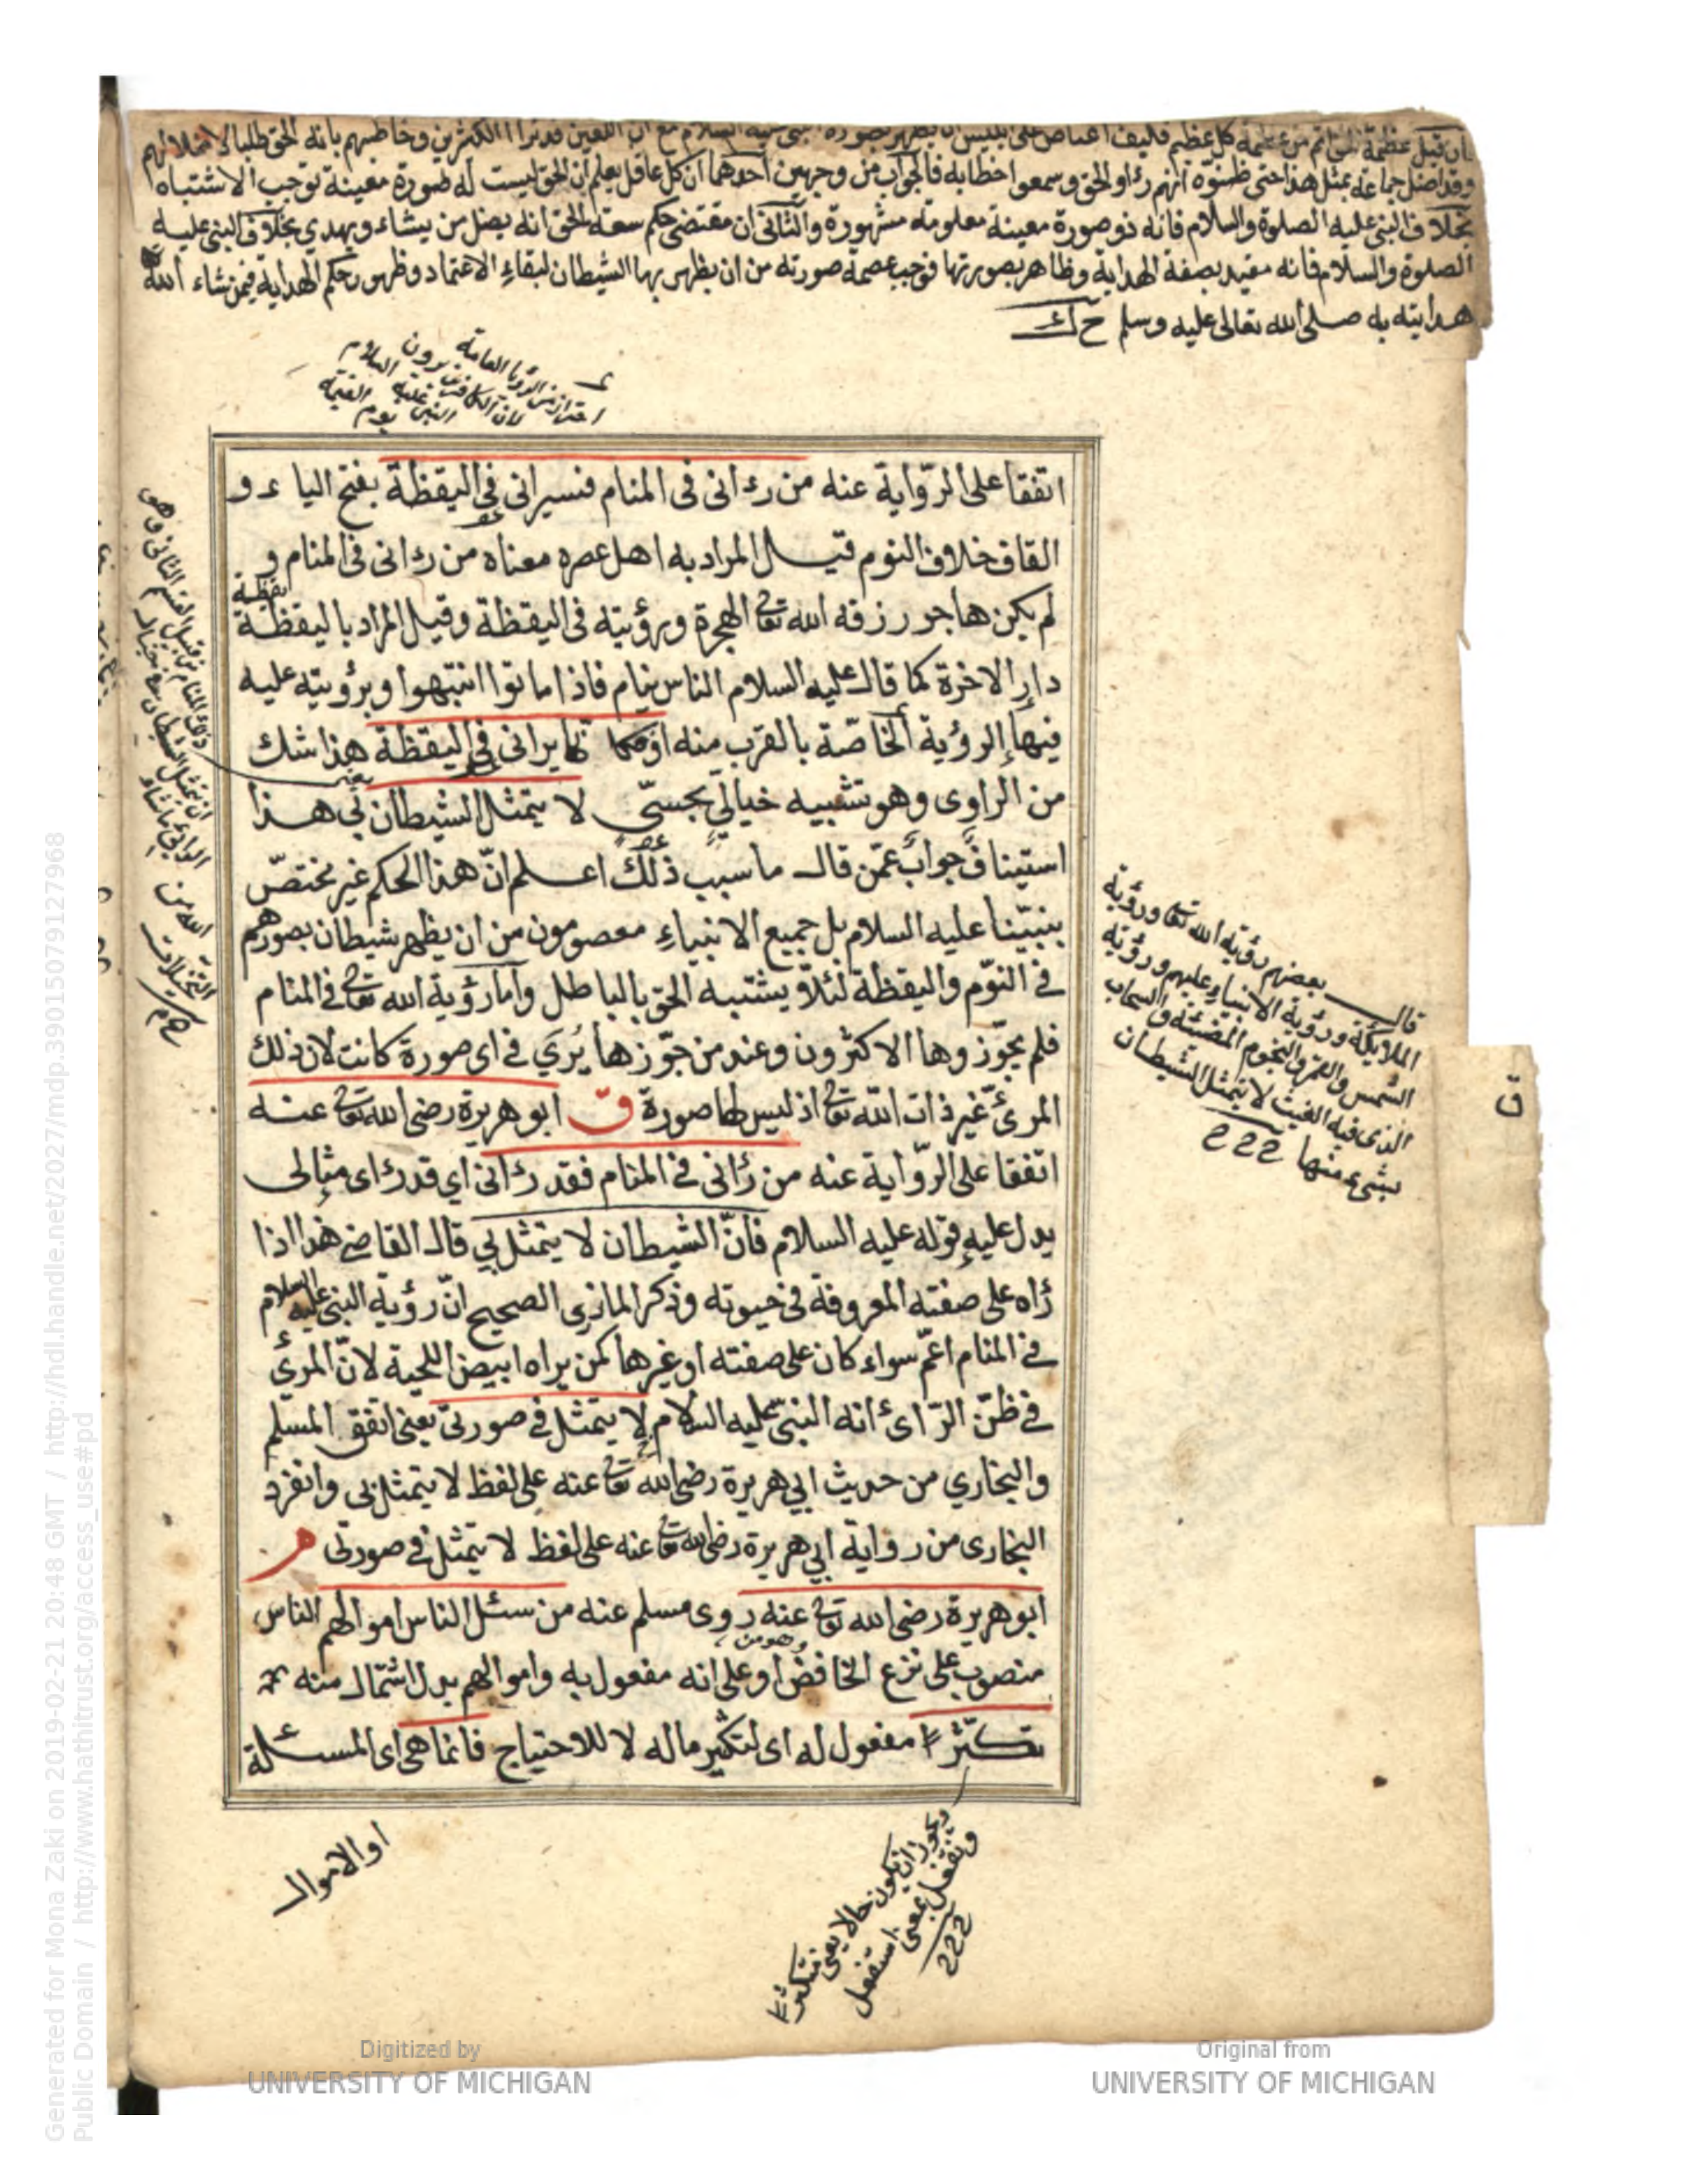 وقد اضل جماعة بمثل هذا حتى ظنوه انهم رأوا الحق وسمعوا خطابه فالجواب من وجهين احدهما ان كل عاقل يعلم ان الحق ليست له صورة معينة توجب الاشتباه
بخلاف النبى عليه الصلوة والسلام فانه ذو صورة معينة معلومة مشهورة والثانى ان مقتضى حكم سعة الحق انه يضل من يشاء ويهدي بخلاف النبى عليه
الصلوة والسلام فانه مقيد بصفة الهداية وظاهر بصورتها فوجب عصمة صورته من ان يظهر بها الشيطان لبقاء الاعتماد وظهور حكم الهداية فيمن شاء الله
هدايته به صلى الله تعالى عليه وسلم
احتراز من الرؤيا العامة
لان الكافر يرون
النبى عليه السلام
يوم القيمة
اتفقا على الرّواية عنه من رءانى فى المنام فسيرانى فى اليقظة بفتح الياء و
القاف خلاف النوم قيل المراد به اهل عصره معناه من رءانى فى المنام و
لم يكن هاجر رزقه الله تعا الهجرة ورؤيته فى اليقظة وقيل المراد باليقظة
يقظة
دار الاخرة كما قال عليه السلام الناس نيام فاذا ماتوا انتبهوا وبرؤيته عليه
فيها الرؤية الخاصّة بالقرب منه او كما يرانى فى اليقظة هذا شك
من الراوى وهو تشبيه خيالي بحسّي لا يتمثل الشيطان بي هذا
استيناف جواب عمّن قال ما سبب ذلك اعلم انّ هذا الحكم غير مختصّ
بنبيّنا عليه السلام بل جميع الانبياء معصومون من ان يظهر شيطان بصورهم
فى النّوم واليقظة لئلّا يشتبه الحق بالباطل وامّا رؤية الله تعا فى المنام
فلم يجوّزوها الاكثرون وعند من جوّزها يُرَي فى اى صورة كانت لان ذلك
المرئ غير ذات الله تعا اذ ليس لها صورة ق ابو هريرة رضى الله تعا عنه
اتفقا على الرّواية عنه من رأنى فى المنام فقد رءانى اي قد رءاى مثالى
يدل عليه قوله عليه السلام فانّ الشيطان لا يتمثل بي قال القاضى هذا اذا
رأه على صفته المعروفة فى حيوته وذكر المازرى الصحيح انّ رؤية النبى عليه السلام
فى المنام اعمّ سواء كان على صفته او غيرها كمن يراه ابيض اللحية لانّ المرئ
فى ظنّ الرّاى انه النبىّ عليه السلام لا يتمثل فى صورتى يعنى اتفق المسلم
والبخاري من حديث ابي هريرة رضى الله تعا عنه على لفظ لا يتمثل بى وانفرد
البخارى من رواية ابي هريرة رضى الله تعا عنه على لفظ لا يتمثل فى صورتى م
ابو هريرة رضى الله تعا عنه روى مسلم عنه من سئل الناس اموالهم الناس
منصوب على نزع الخافض او على انه مفعول به واموالهم بدل اشتمال منه
وهو من
تكثّرا مفعول له اى لتكثير ماله لا للاحتياج فانما هى اى المسئلة
قال بعضهم رؤية الله تعا ورؤية
الملائكة ورؤية الانبياء عليهم ورؤية
الشمس والقمر والنجوم المضيئة والسحاب
الذى فيه الغيث لا يتمثل الشيطان
بشىء منها
ق
ويجوز ان يكون حالا يعنى متكثرا
وتفعل بمعنى استفعل
او الاموال
Generated for Mona Zaki on 2019-02-21 20:48 GMT / http://hdl.handle.net/2027/mdp.39015079127968
Public Domain / http://www.hathitrust.org/access_use#pd
Digitized by
UNIVERSITY OF MICHIGAN
Original from
UNIVERSITY OF MICHIGAN